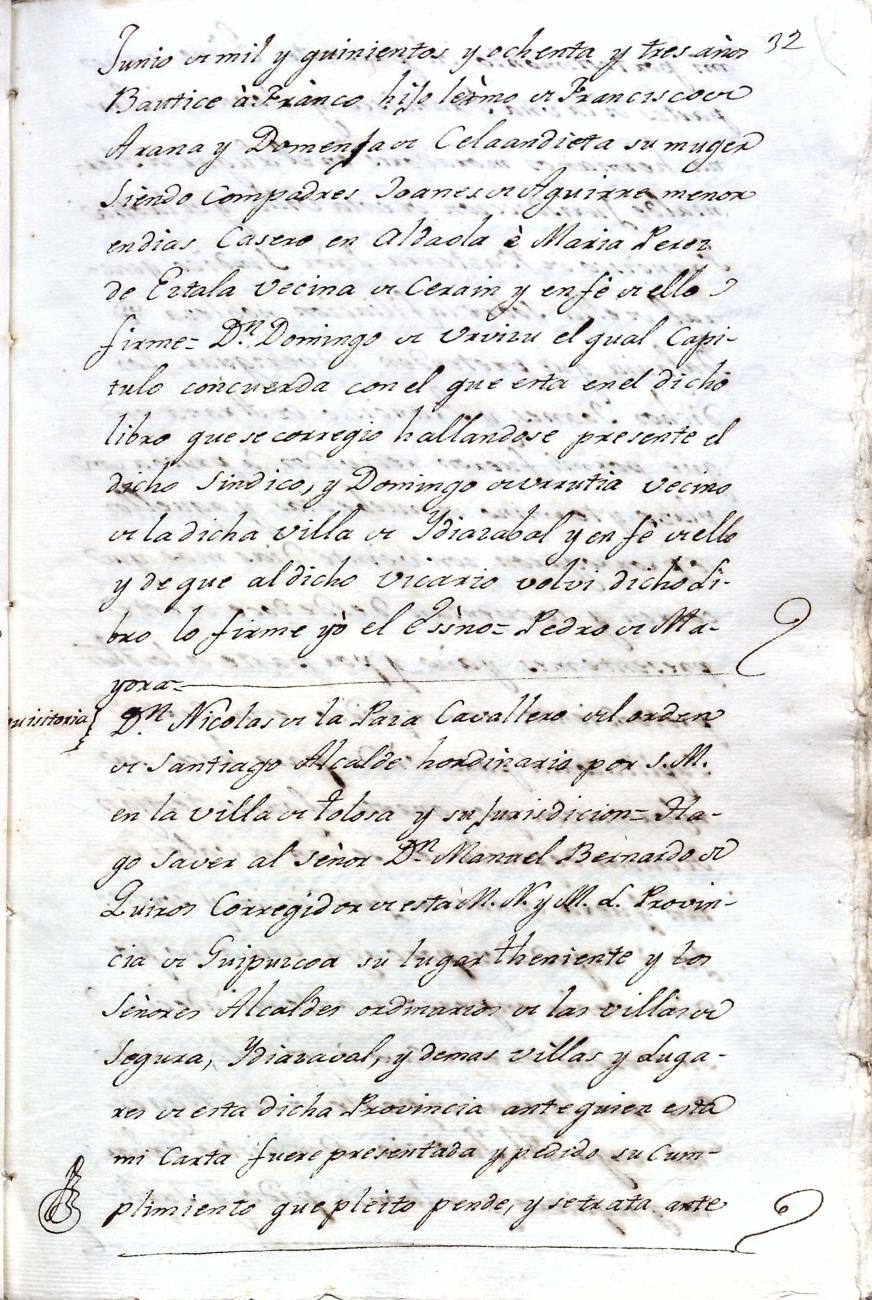 32
Junio de mil y quinientos y ochenta y tres años
Bautice à Franco hijo lexmo de Francisco de
Arana y Domenja de Celaandieta su muger
Siendo Compadres Joanes de Aguirre menor
endias Casero en Aldaola è Maria Perez
de Eztala Vecina de Cerain y en fè de ello
firme= Dn. Domingo de Urvizu el qual Capi-
tulo concuerda con el que esta en el dicho
libro que se corregio hallandose presente el
dicho Sindico, y Domingo de urrutia vecino
de la dicha villa de Ydiazabal y en fè de ello
y de que al dicho vicario volvi dicho Li-
bro lo firme yò el Essno= Pedro de Ma-
yora=
quisitoria} Dn. Nicolas de la Paza Cavallero del orden
de Santiago Alcalde hordinario por S. M.
en la villa de tolosa y su Jurisdicion= Ha-
go saver al señor Dn. Manuel Bernardo de
Quiros Corregidor de esta M. N. y M. L. Provin-
cia de Guipuzcoa su lugar theniente y los
Señores Alcaldes ordinarios de las villas de
Segura, Ydiazaval, y demas villas y Luga-
res de esta dicha Provincia ante quien esta
mi Carta fuere presentada y pedido su Cum-
plimiento que pleito pende, y se trata ante